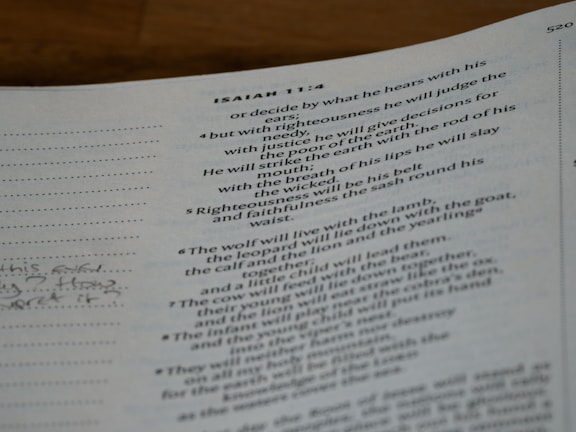 520
ISAIAH 11:4
or decide by what he hears with his
ears;
4 but with righteousness he will judge the
needy,
with justice he will give decisions for
the poor of the earth.
He will strike the earth with the rod of his
mouth;
with the breath of his lips he will slay
the wicked.
5 Righteousness will be his belt
and faithfulness the sash round his
waist.
6 The wolf will live with the lamb,
the leopard will lie down with the goat,
the calf and the lion and the yearling
together;
and a little child will lead them.
7 The cow will feed with the bear,
their young will lie down together,
and the lion will eat straw like the ox.
8 The infant will play near the cobra's den,
and the young child will put its hand
into the viper's nest.
9 They will neither harm nor destroy
on all my holy mountain,
for the earth will be filled with the
knowledge of the LORD
as the waters cover the sea.
day the Root of Jesse will stand as
the nations will rally
this